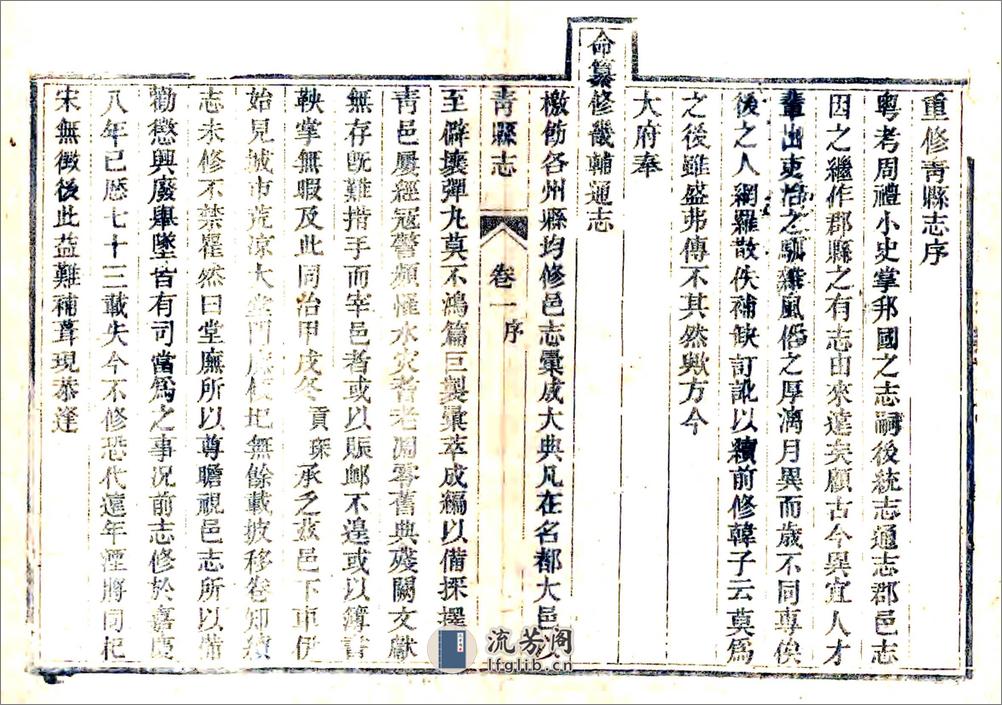 重修靑縣志序
粤考周禮小史掌邦國之志嗣後統志通志郡邑志
因之繼作郡縣之有志由來遠矣顧古今異宜人才
輩出吏治之馴雜風俗之厚漓月異而歲不同專俟
後之人網羅散佚補缺訂訛以續前修韓子云莫爲
之後雖盛弗傳不其然歟方今
大府奉
命纂修畿輔通志
檄飭各州縣均修邑志彙成大典凡在名都大邑以
靑縣志
卷一序
至僻壤彈丸莫不鴻篇巨製彙萃成編以備採擇
靑邑屢經寇警頻罹水災耆老凋零舊典殘闕文獻
無存旣難措手而宰邑者或以賑邮不遑或以簿書
鞅掌無暇及此同治甲戌冬貢琛承乏茲邑下車伊
始見城市荒凉大堂門廡傾圯無餘載披移卷知續
志未修不禁瞿然曰堂廡所以尊瞻視邑志所以備
勸懲興廢舉墜皆有司當爲之事况前志修於嘉慶
八年已歷七十三載失今不修恐代遠年湮將同杞
宋無徵後此益難補葺現恭逢
流芳阁
lfglib.cn